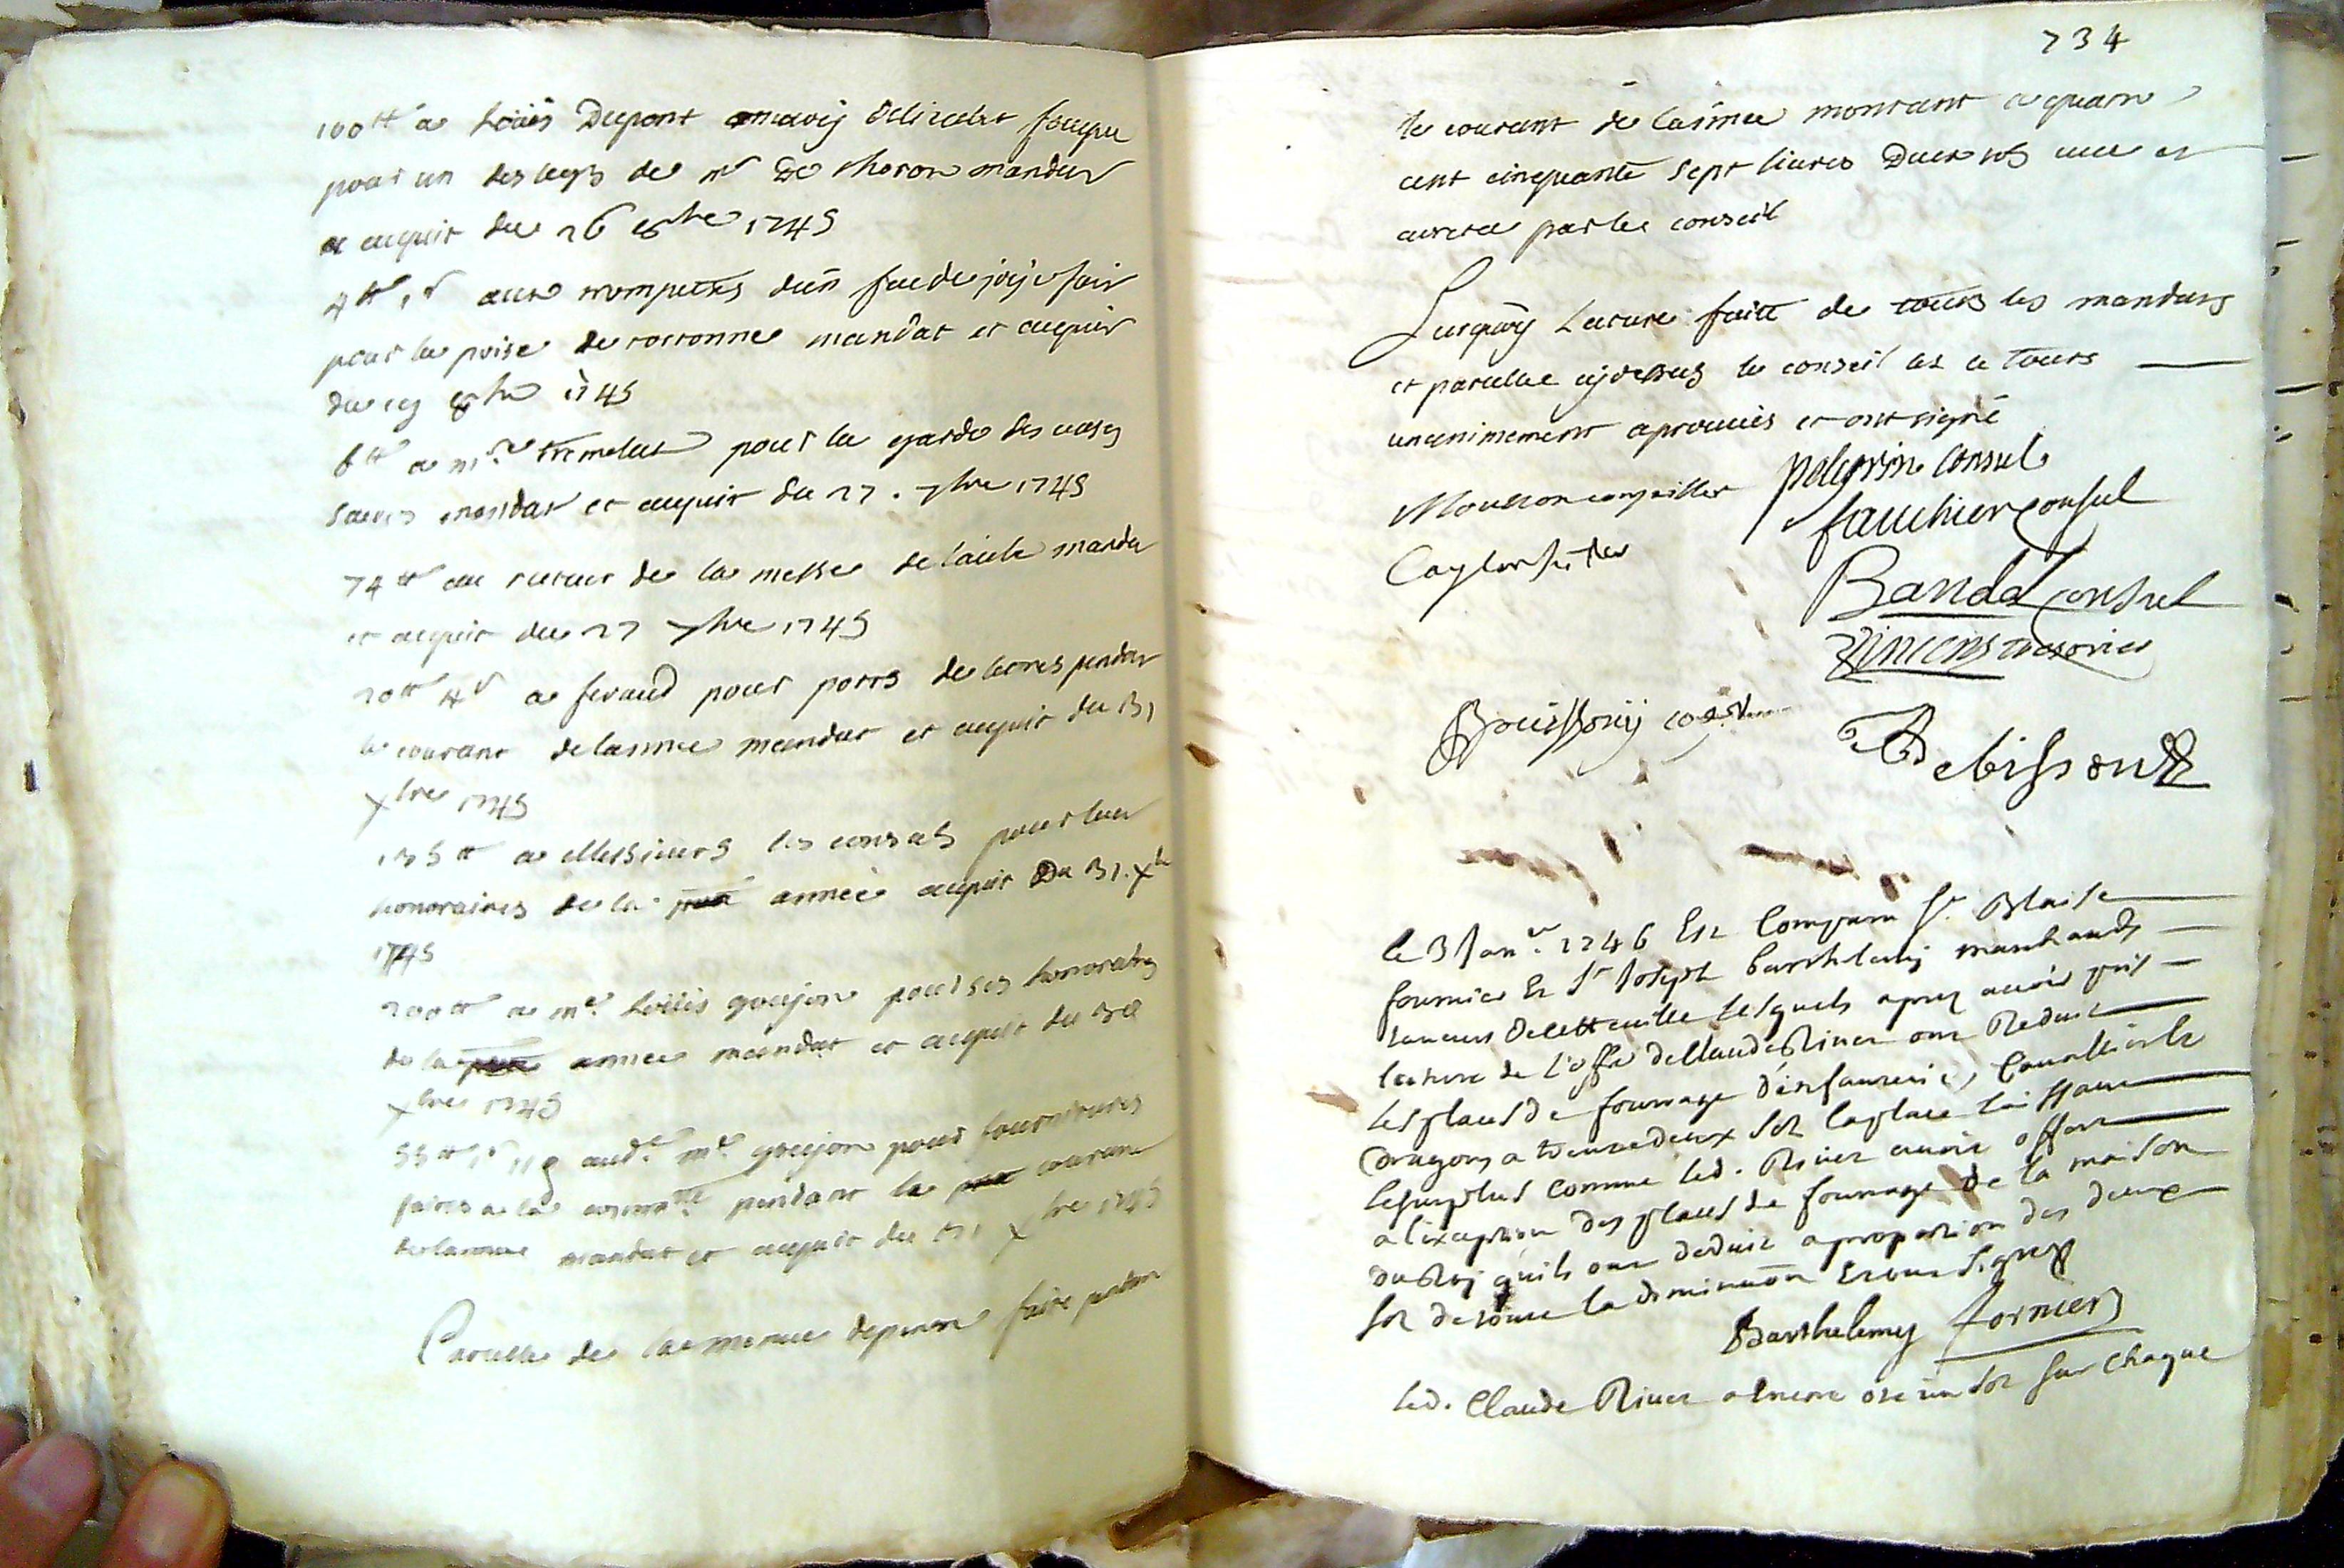 100 tt a Loüis Dupont amary
pour un des legs de mr De Mandat
et acquit du 26 8bre 1745
4 tt 1 s aux trompettes dun feu de joÿe fait
pour la prise de tortonne mandat et acquit
du 8bre 1745
6 tt a mre pour la garde des vases
sacrés mandat et acquit du 27. 7bre 1745
74 tt au recteur de la messe de laube mandat
et acquit du 27 7bre 1745
20 tt 4 s a feraud pour ports de lettres pendant
le courant de lannee mandat et acquit du 31
Xbre 1745
135 tt a Messieurs les consuls pour leur
honoraires de la année acquit Du 31. Xbre
1745
200 tt a me. Loüis goujon pour ses honoraires
de la annee mandat et acquit du
Xbre 1745
55 tt 1 s 11 d aud. me. goujon pour fournitures
faites a la commté. pendant le courant
de lannee mandat et acquit du 31 Xbre 1745
Parcelle de la menue depense faite pendant
734
le courant de lannee montant a quatre
cent cinquante sept livres Deux sols veue et
arretee par le conseil
Surquoy Lecture faitte de touts les mandats
et parcelle cy dessus le conseil les a touts
unanimement aprouvés et ont signé
Mouton conseiller pelegrin Consul
fauchier Consul
Caylor
Bandol Consul
Vincens tresorier
Bouissony
Debissond
le 3 Janer. 1746 Est Comparu Sr. Blaise
fournier Et Sr Joseph barthelemy marchands
tanneurs de cette ville lesquels aprez avoir pris
lecture de l'offre de Claude River ont Reduit
les places de fourrage d'infanterie, Cavallerie &
dragons a trente deux sol la place laissant
le surplus comme led. River avoit offert
a l'exception des places de fourrage de la maison
du Roy quils ont deduit a proportion des deux
sol de toute la diminuõn Et ont Signez
Barthelemy fornier
Led. Claude River a encore oté un sol sur Chaque